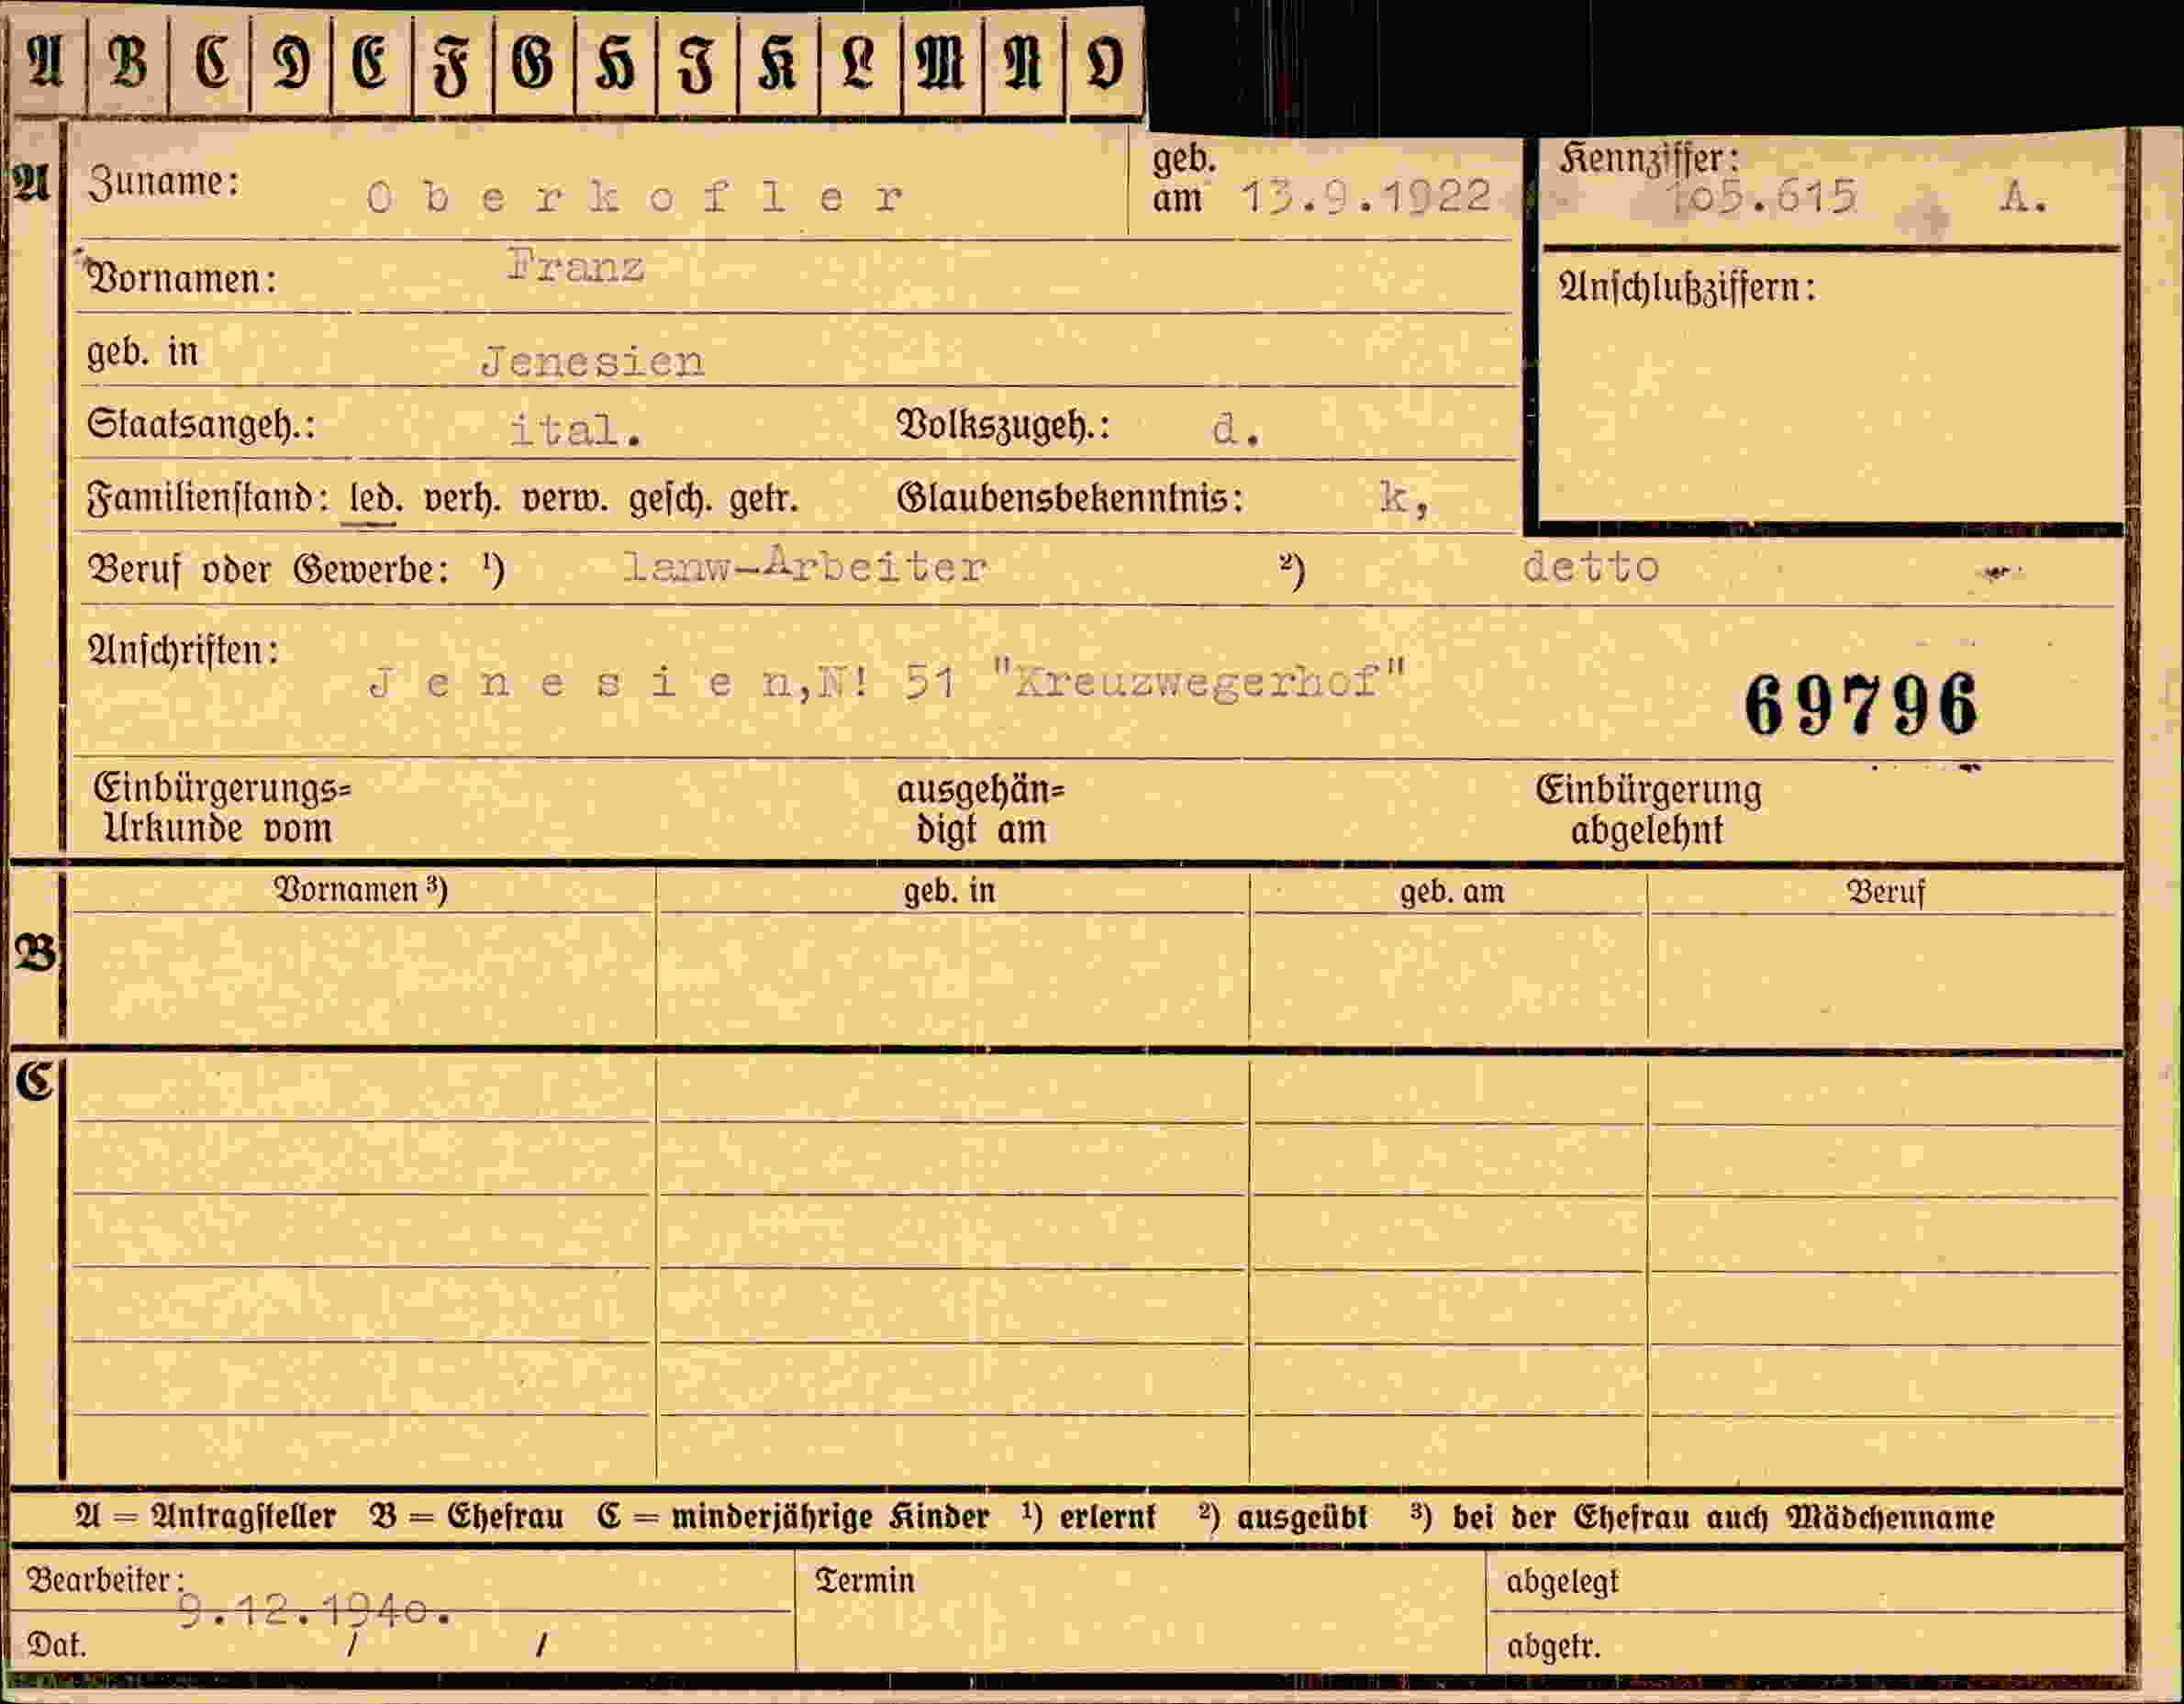 A B C D E F G H I K L M N O
A Zuname: Oberkofler geb. am 13.9.1922 Kennziffer: 105.615 A.
Vornamen: Franz Anschlußziffern:
geb. in Jenesien
Staatsangeh.: ital. Volkszugeh.: d.
Familienstand: led. verh. verw. gesch. getr. Glaubensbekenntnis: k,
Beruf oder Gewerbe: 1) lanw-Arbeiter 2) detto
Anschriften: Jenesien,N! 51 "Kreuzwegerhof"
69796
Einbürgerungs=Urkunde vom ausgehän=digt am Einbürgerung abgelehnt
B Vornamen 3) geb. in geb. am Beruf
C
A = Antragsteller B = Ehefrau C = minderjährige Kinder 1) erlernt 2) ausgeübt 3) bei der Ehefrau auch Mädchenname
Bearbeiter: Termin abgelegt
9.12.1940.
Dat. / / abgetr.